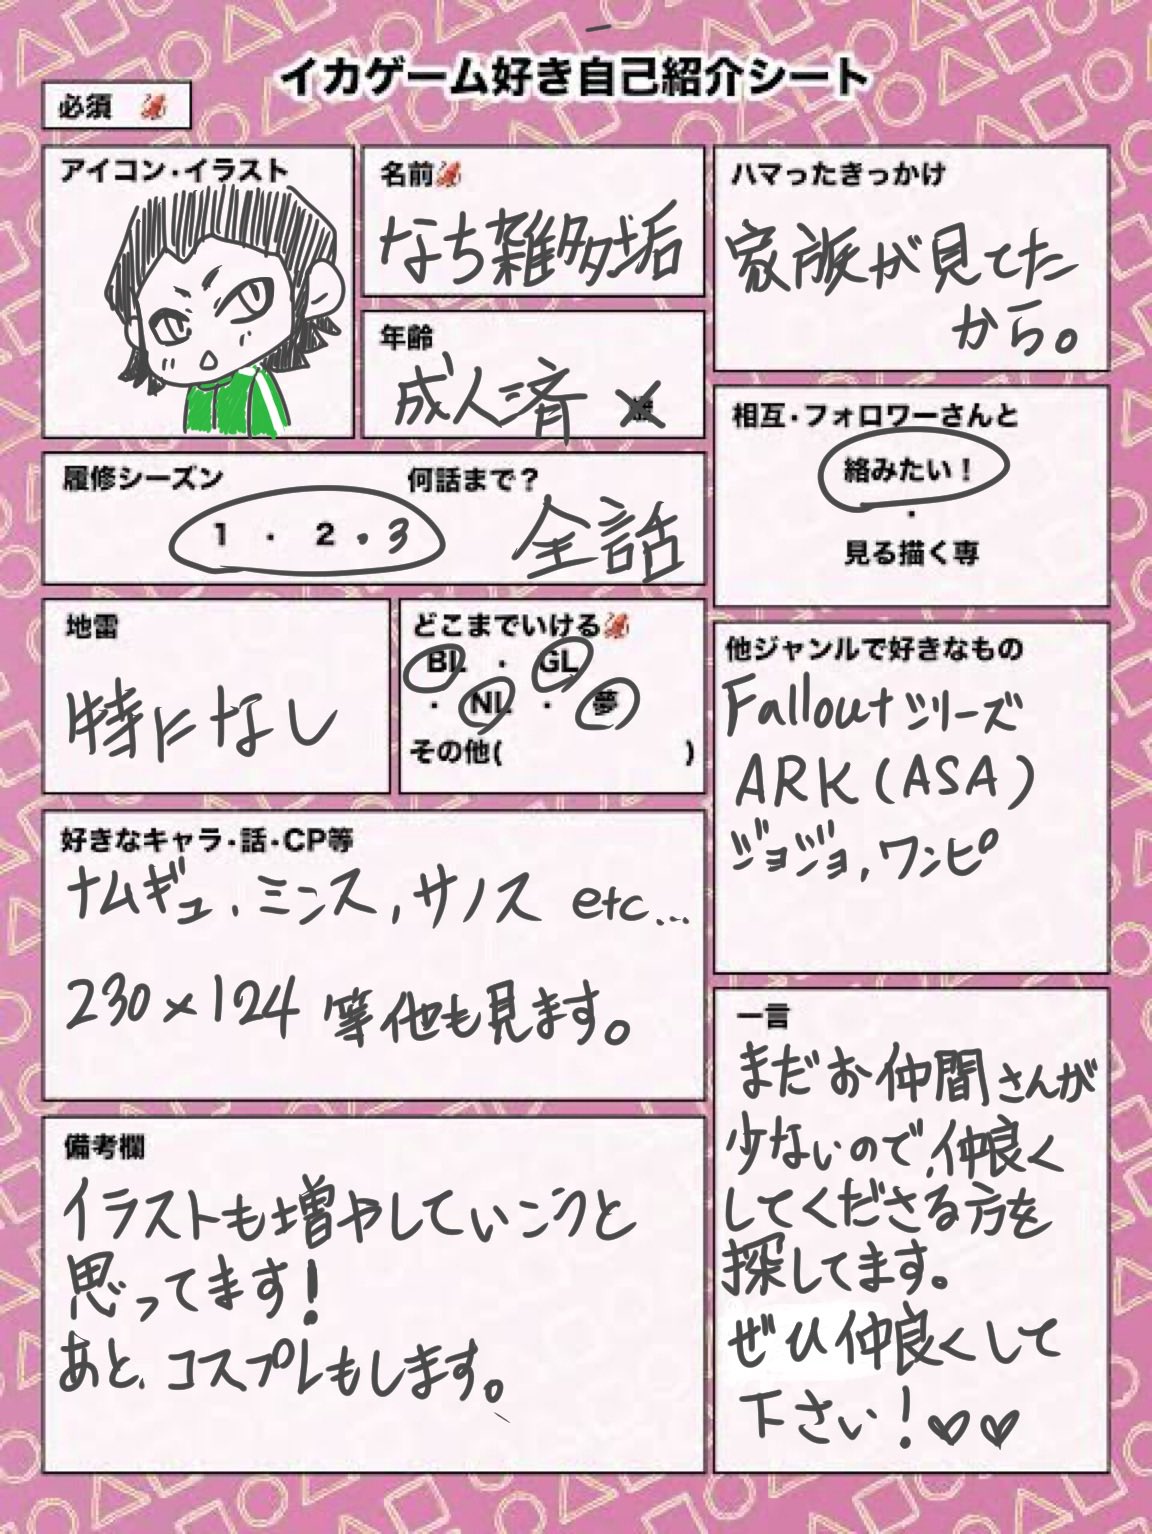 イカゲーム好き自己紹介シート
必須
アイコン・イラスト
名前
なち雑多垢
年齢
成人済
ハマったきっかけ
家族が見てた
から。
相互・フォロワーさんと
絡みたい！
・
見る描く専
履修シーズン 何話まで？
1 ・ 2 ・ 3 全話
地雷
特になし
どこまでいける
BL ・ GL
・ NL ・ 夢
その他( )
他ジャンルで好きなもの
Falloutシリーズ
ARK(ASA)
ジョジョ,ワンピ
好きなキャラ・話・CP等
ナムギュ、ミンス,サノス etc...
230×124 等他も見ます。
備考欄
イラストも増やしていこうと
思ってます！
あと、コスプレもします。
一言
まだお仲間さんが
少ないので、仲良く
してくださる方を
探してます。
ぜひ仲良くして
下さい！♡♡